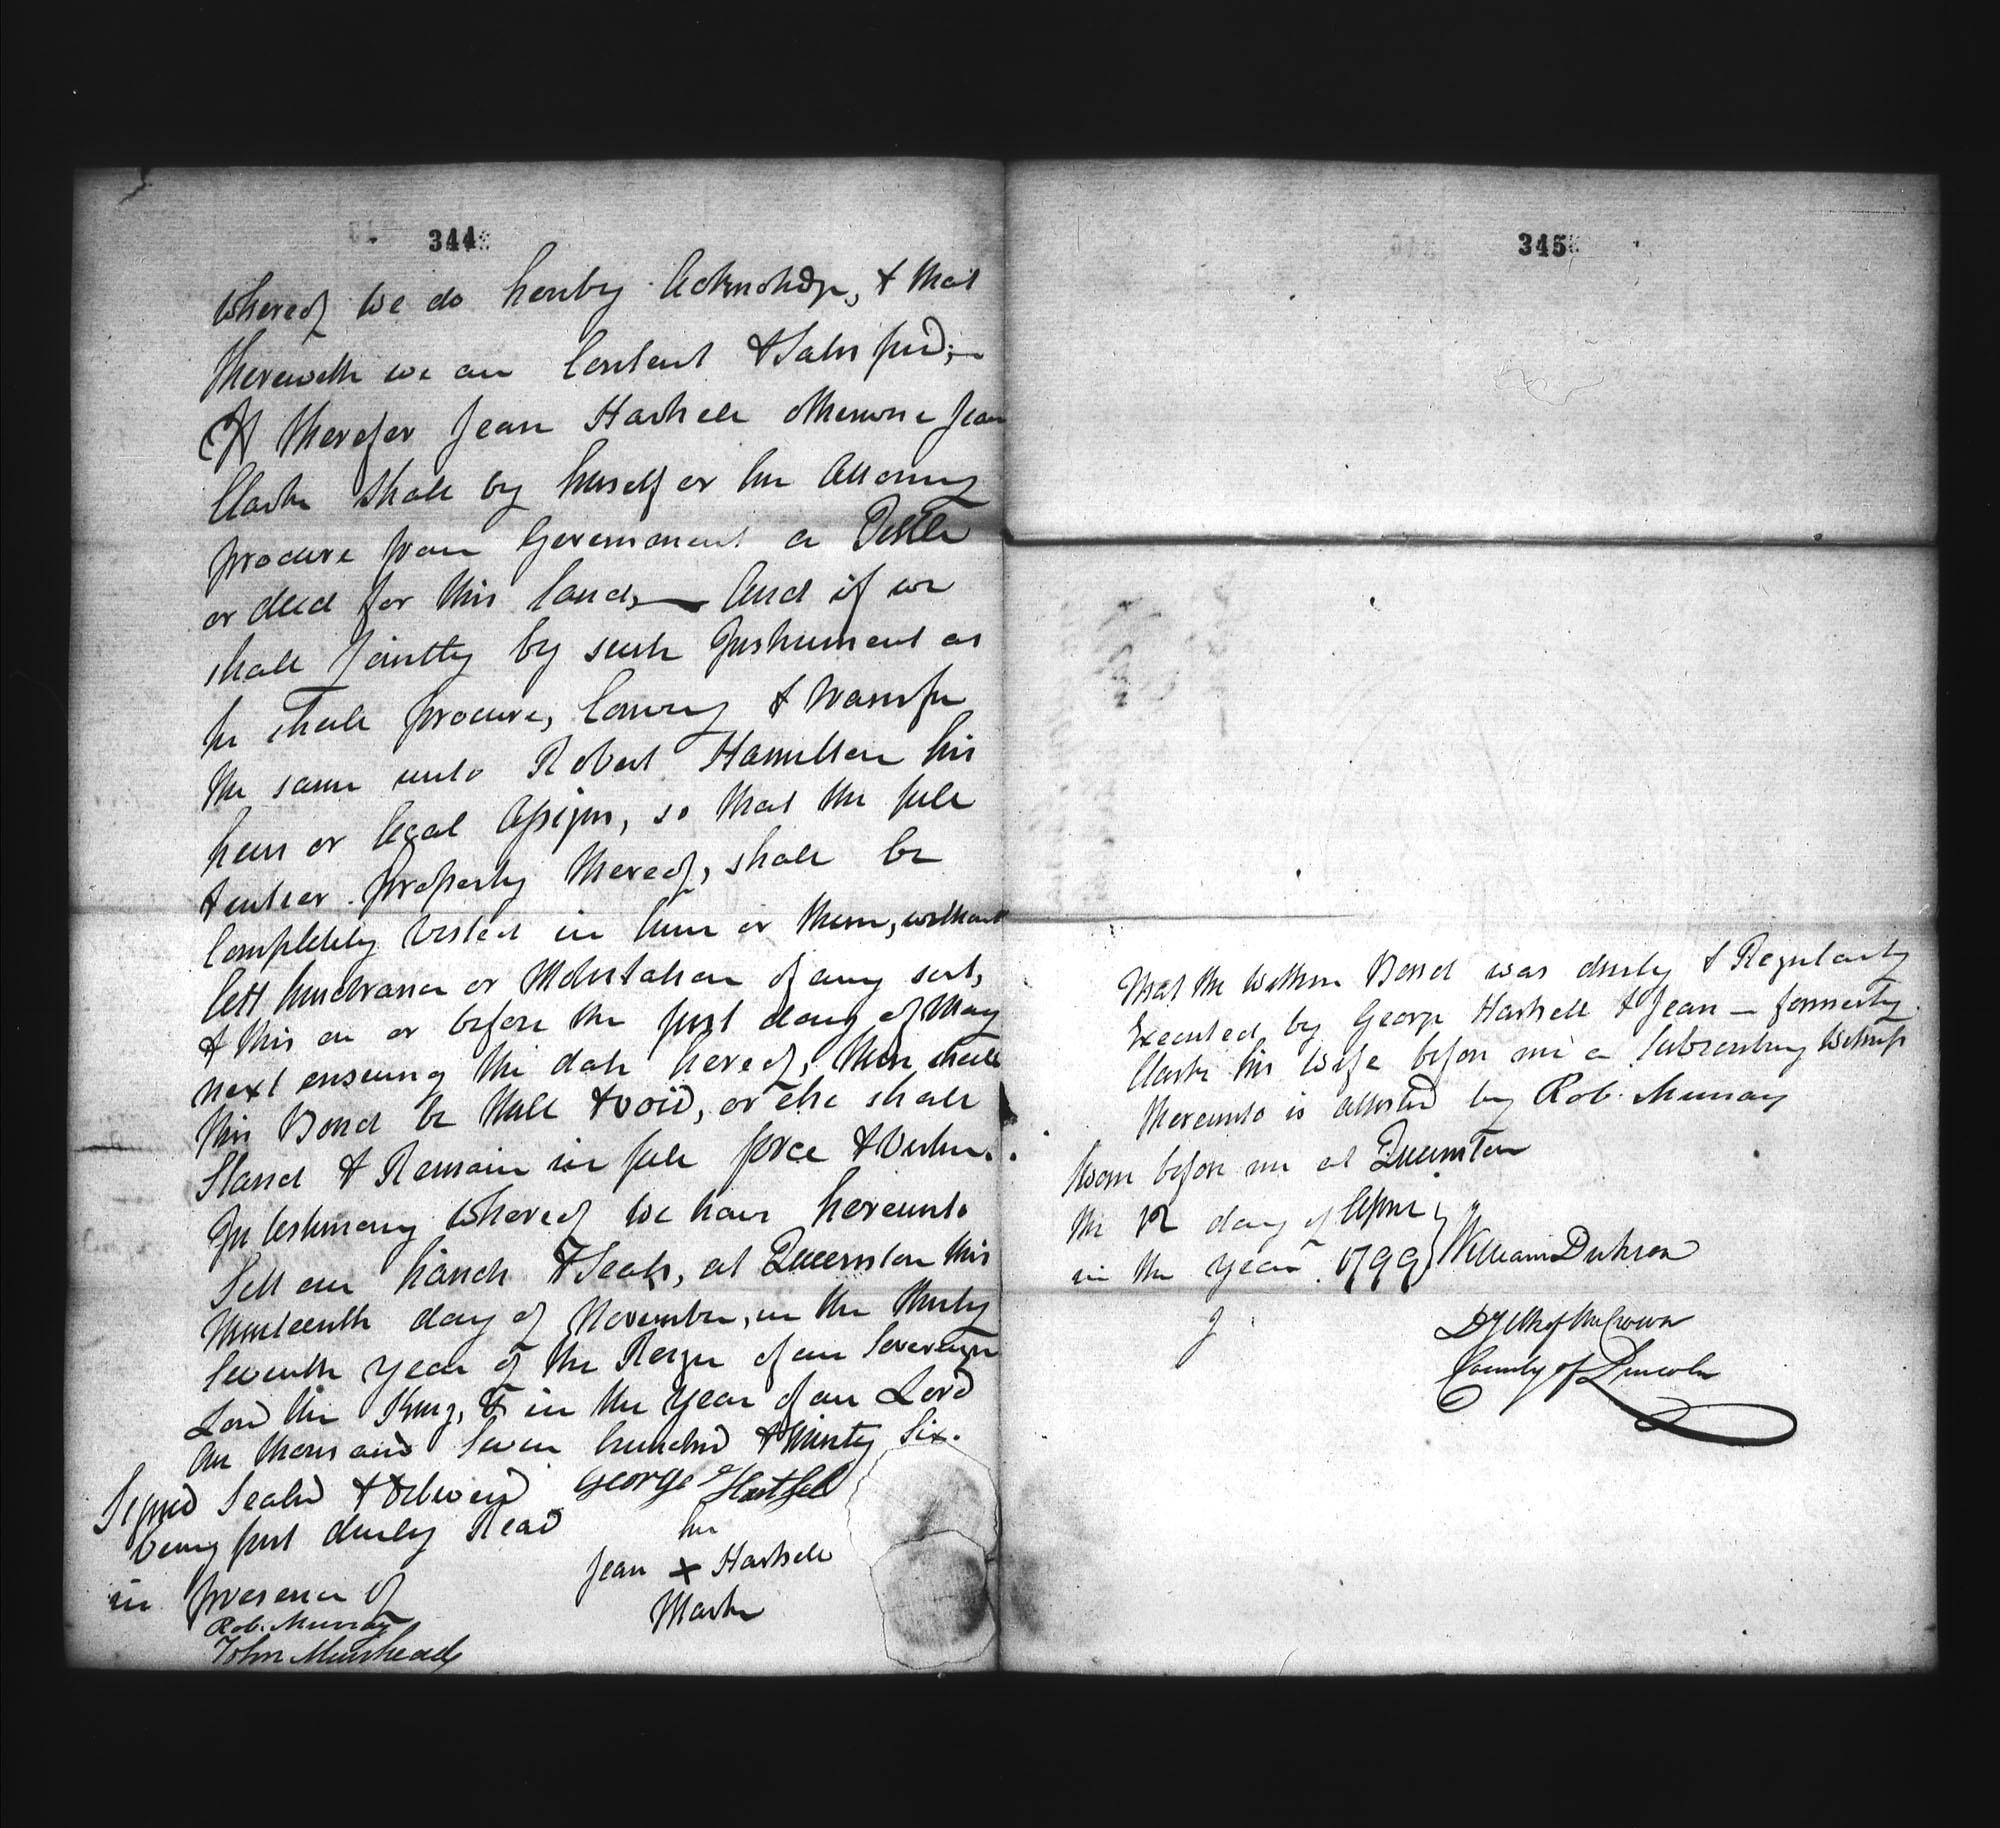 344
whereof we do hereby Acknowledge, & that
therewith we are Content & Satisfied;—
If therefor Jean Hartsell otherwise Jean
Clark shall by herself or her Attorney
procure from Government a Tittle
or deed for this land,— And if we
shall Jointly by such Instrument as
he shall procure, Convey & transfer
the same unto Robert Hamilton his
heirs or legal Assigns, so that the full
& entier property thereof, shall be
Completely Vested in him or them, without
lett hindrance or Molestation of any sort,
& this on or before the first day of May
next ensuing the date hereof, then shall
this Bond be Null & void, or else shall
Stand & Remain in full force & Virtue.
In testimony whereof we have hereunto
Sett our hands & Seals, at Queenston this
Nineteenth day of November, in the thirty
Seventh year of the Reign of our Sovereign
Lord the King, & in the year of our Lord
One thousand Seven hundred & Ninety Six.
Signed Sealed & Delivered
being first duely Read
in presence of
Rob. Murray
John Muirhead
George Hartsel
her
Jean X Hartsell
Mark
345
That the within Bond was duely & Regularly
Executed by George Hartsell & Jean — formerly
Clark his Wife before me a Subscribing Witness
thereunto is attested by Rob. Murray
Sworn before me at Queenston
the 12 day of April
in the Year 1799
William Dickson
Dy Clk of the Crown
County of Lincoln